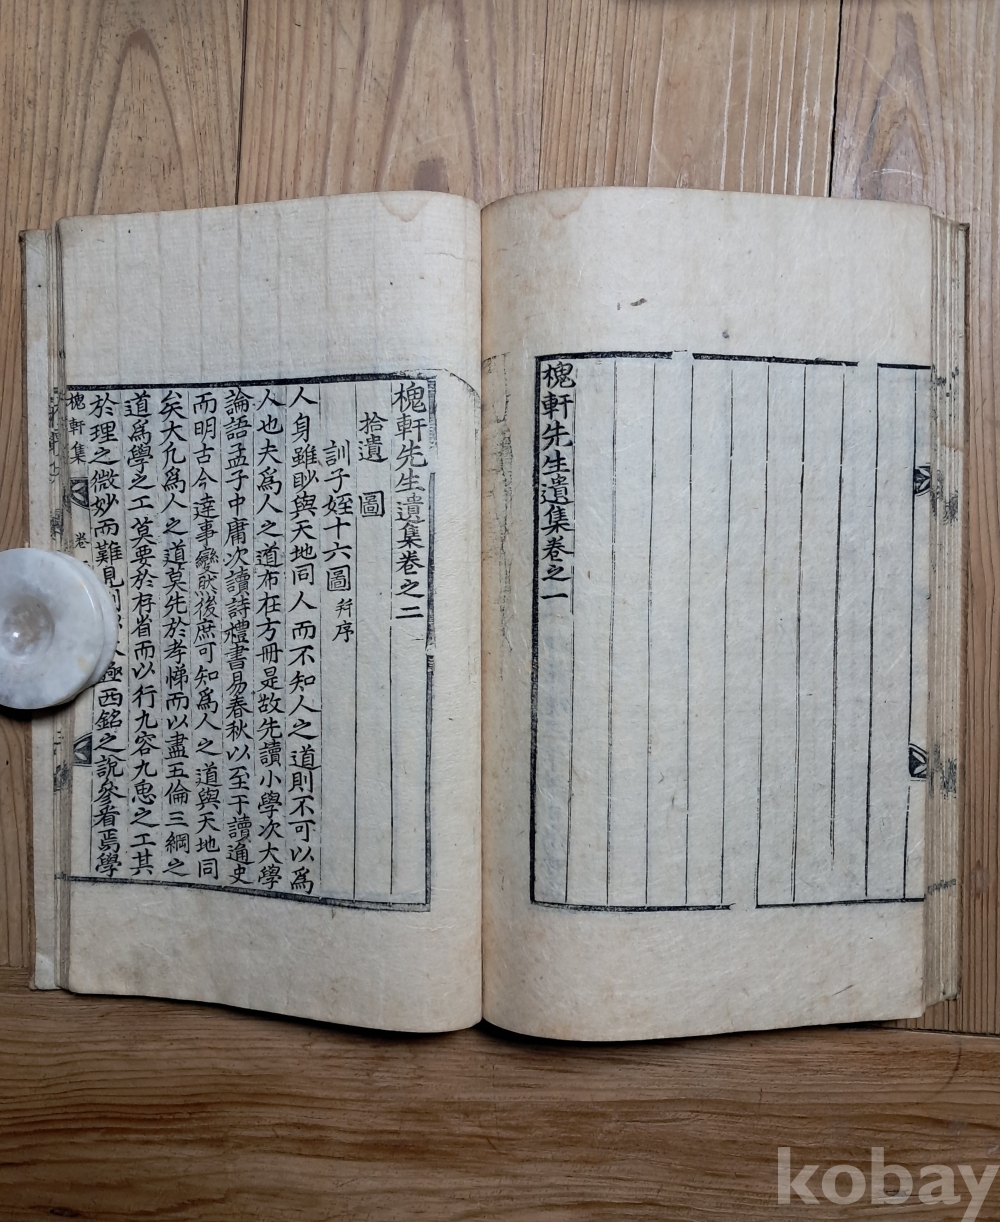 槐軒先生遺集卷之一
槐軒先生遺集卷之二
拾遺 圖
訓子姪十六圖 并序
人身雖眇與天地同人而不知人之道則不可以爲
人也夫爲人之道布在方冊是故先讀小學次大學
論語孟子中庸次讀詩禮書易春秋以至于讀通史
而明古今達事變然後庶可知爲人之道與天地同
矣大凡爲人之道莫先於孝悌而以盡五倫三綱之
道爲學之工莫要於存省而以行九容九思之工其
於理之微妙而難見 極西銘之說參看焉學
槐軒集 卷
kobay